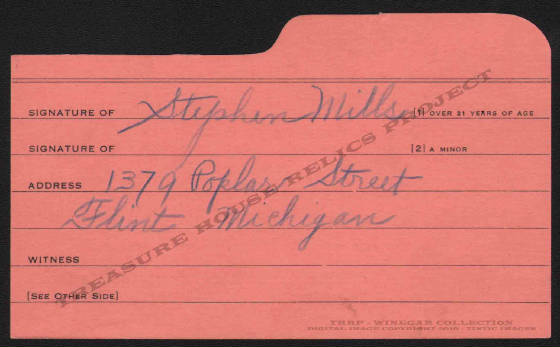 SIGNATURE OF Stephen Mills [1] OVER 21 YEARS OF AGE
SIGNATURE OF [2] A MINOR
ADDRESS 1379 Poplar Street
Flint Michigan
WITNESS
[SEE OTHER SIDE]
TREASURE HOUSE RELICS PROJECT
THRP - WINEGAR COLLECTION
DIGITAL IMAGE COPYRIGHT 2010 - TINTIC IMAGES